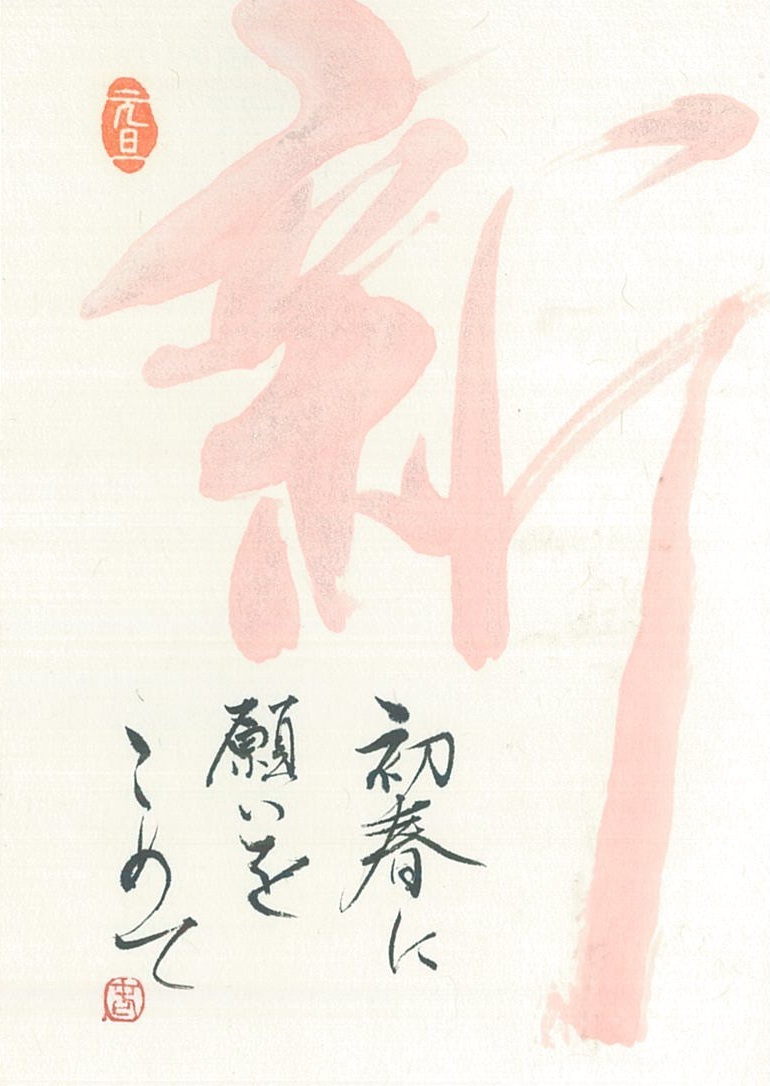 新
元旦
初春に
願いを
こめて